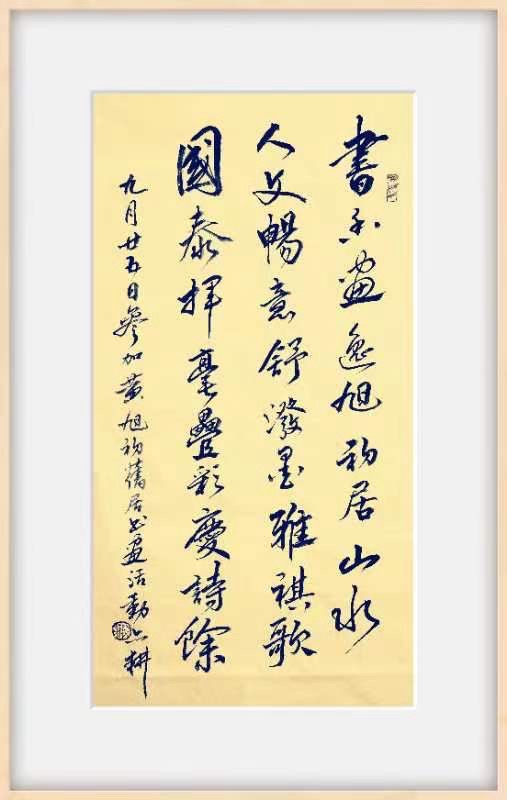 書香畫逸旭初居山水
人文暢意舒潑墨雅祺歌
國泰揮毫疊彩慶詩餘
九月廿五日參加黃旭初舊居书畫活動耕